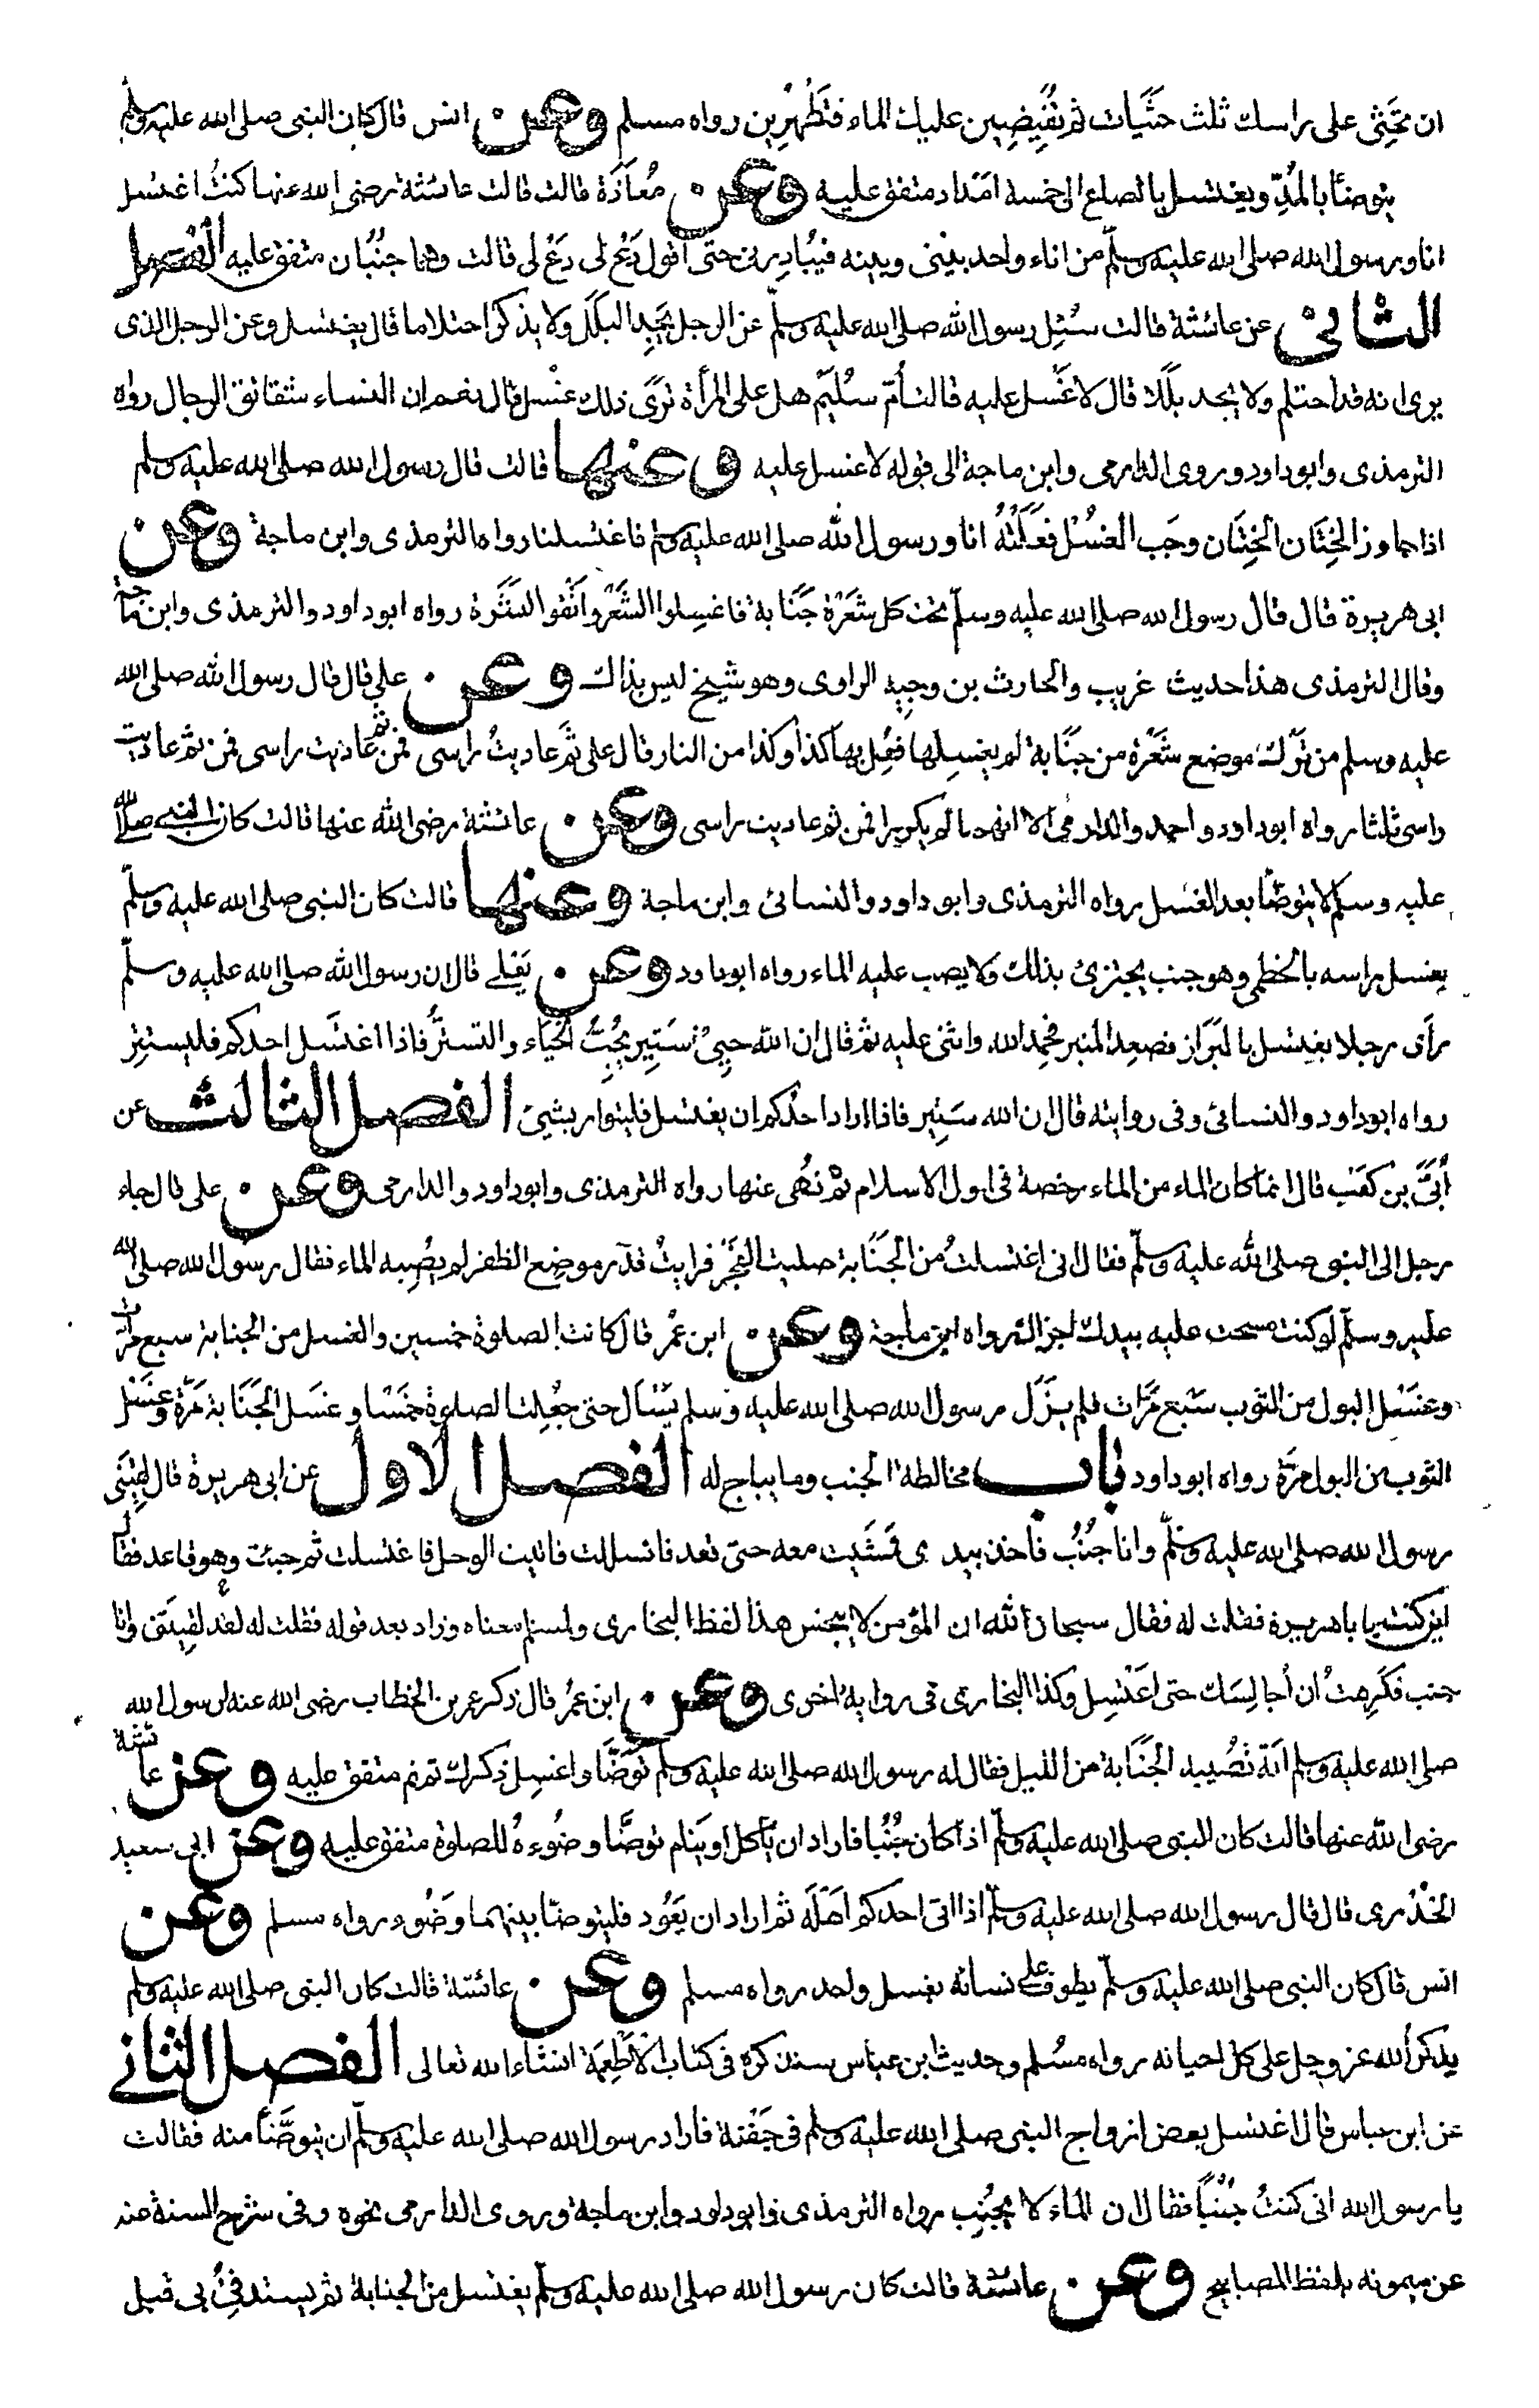 ان تحثي على راسك ثلث حثيات ثم تفيضين عليك الماء فتطهرين رواه مسلم وعن انس قال كان النبى صلى الله عليه وسلم
يتوضأ بالمد ويغتسل بالصاع الى خمسة امداد متفق عليه وعن معاذة قالت قالت عائشة رضى الله عنها كنت اغتسل
انا ورسول الله صلى الله عليه وسلم من اناء واحد بينى وبينه فيبادرنى حتى اقول دع لى دع لى قالت وهما جنبان متفق عليه الفصل
الثانى عن عائشة قالت سئل رسول الله صلى الله عليه وسلم عن الرجل يجد البلل ولا يذكر احتلاما قال يغتسل وعن الرجل الذى
يرى انه قد احتلم ولا يجد بللا قال لا غسل عليه قالت أم سليم هل على المرأة ترى ذلك غسل قال نعم ان النساء شقائق الرجال رواه
الترمذى وابو داود وروى الدارمى وابن ماجة الى قوله لا غسل عليه وعنها قالت قال رسول الله صلى الله عليه وسلم
اذا جاوز الختان الختان وجب الغسل فعلته انا ورسول الله صلى الله عليه وسلم فاغتسلنا رواه الترمذى وابن ماجة وعن
ابى هريرة قال قال رسول الله صلى الله عليه وسلم تحت كل شعرة جنابة فاغسلوا الشعر وانقوا البشرة رواه ابو داود والترمذى وابن ماجة
وقال الترمذى هذا حديث غريب والحارث بن وجيه الراوى وهو شيخ ليس بذاك وعن على قال قال رسول الله صلى الله
عليه وسلم من ترك موضع شعرة من جنابة لم يغسلها فعل بها كذا وكذا من النار قال على فمن ثم عاديت راسى فمن ثم عاديت راسى فمن ثم عاديت
راسى ثلثا رواه ابو داود واحمد والدارمى الا انهما لم يكررا فمن ثم عاديت راسى وعن عائشة رضى الله عنها قالت كان النبى صلى الله
عليه وسلم لا يتوضأ بعد الغسل رواه الترمذى وابو داود والنسائى وابن ماجة وعنها قالت كان النبى صلى الله عليه وسلم
يغسل راسه بالخطمى وهو جنب يجتزئ بذلك ولا يصب عليه الماء رواه ابو داود وعن يعلى قال ان رسول الله صلى الله عليه وسلم
رأى رجلا يغتسل بالبراز فصعد المنبر فحمد الله واثنى عليه ثم قال ان الله حيى ستير يحب الحياء والتستر فاذا اغتسل احدكم فليستتر
رواه ابو داود والنسائى وفى روايته قال ان الله ستير فاذا اراد احدكم ان يغتسل فليتوار بشئ الفصل الثالث عن
أبى بن كعب قال انما كان الماء من الماء رخصة فى اول الاسلام ثم نهى عنها رواه الترمذى وابو داود والدارمى وعن على قال جاء
رجل الى النبى صلى الله عليه وسلم فقال انى اغتسلت من الجنابة صليت الفجر فرايت قدر موضع الظفر لم يصبه الماء فقال رسول الله صلى الله
عليه وسلم لو كنت مسحت عليه بيدك اجزاك رواه ابن ماجة وعن ابن عمر قال كانت الصلوة خمسين والغسل من الجنابة سبع مرات
وغسل البول من الثوب سبع مرات فلم يزل رسول الله صلى الله عليه وسلم يسأل حتى جعلت الصلوة خمسا وغسل الجنابة مرة وغسل
الثوب من البول مرة رواه ابو داود باب مخالطة الجنب وما يباح له الفصل الاول عن ابى هريرة قال لقينى
رسول الله صلى الله عليه وسلم وانا جنب فاخذ بيدى فمشيت معه حتى قعد فانسللت فاتيت الرحل فاغتسلت ثم جئت وهو قاعد فقال
اين كنت يا با هريرة فقلت له فقال سبحان الله ان المؤمن لا ينجس هذا لفظ البخارى ولمسلم معناه وزاد بعد قوله فقلت له لقد لقيتنى وانا
جنب فكرهت ان أجالسك حتى اغتسل وكذا البخارى فى رواية اخرى وعن ابن عمر قال ذكر عمر بن الخطاب رضى الله عنه لرسول الله
صلى الله عليه وسلم انه تصيبه الجنابة من الليل فقال له رسول الله صلى الله عليه وسلم توضأ واغسل ذكرك ثم نم متفق عليه وعن عائشة
رضى الله عنها قالت كان النبى صلى الله عليه وسلم اذا كان جنبا فاراد ان يأكل او ينام توضأ وضوءه للصلوة متفق عليه وعن ابى سعيد
الخدرى قال قال رسول الله صلى الله عليه وسلم اذا اتى احدكم اهله ثم اراد ان يعود فليتوضأ بينهما وضوء رواه مسلم وعن
انس قال كان النبى صلى الله عليه وسلم يطوف على نسائه بغسل واحد رواه مسلم وعن عائشة قالت كان النبى صلى الله عليه وسلم
يذكر الله عز وجل على كل احيانه رواه مسلم وحديث ابن عباس سنذكره فى كتاب الاطعمة انشاء الله تعالى الفصل الثانى
عن ابن عباس قال اغتسل بعض ازواج النبى صلى الله عليه وسلم فى جفنة فاراد رسول الله صلى الله عليه وسلم ان يتوضأ منه فقالت
يا رسول الله انى كنت جنبا فقال ان الماء لا يجنب رواه الترمذى وابو داود وابن ماجة وروى الدارمى نحوه وفى شرح السنة عنه
عن ميمونه بلفظ المصابيح وعن عائشة قالت كان رسول الله صلى الله عليه وسلم يغتسل من الجنابة ثم يستدفئ بى قبل